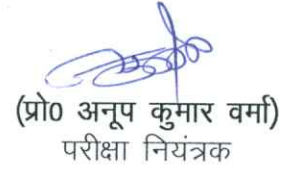 (प्रो0 अनूप कुमार वर्मा)
परीक्षा नियंत्रक